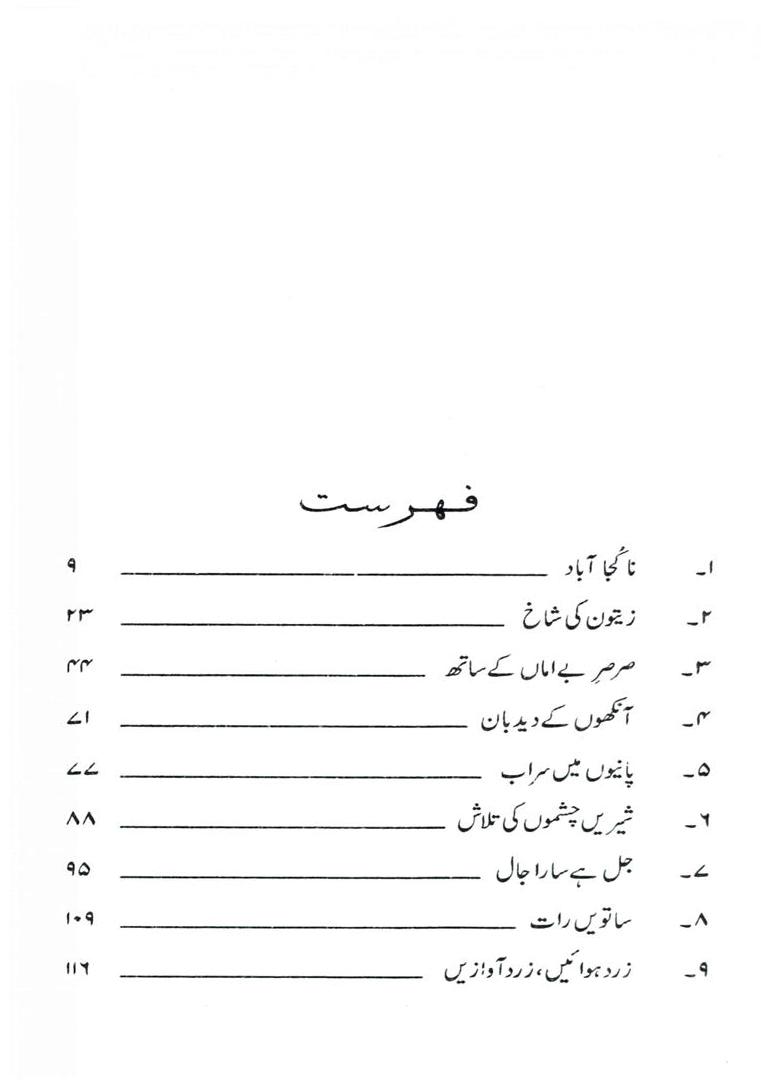 فہرست
۱۔ ناکُجا آباد ۹
۲۔ زیتون کی شاخ ۲۳
۳۔ صرصرِ بے اماں کے ساتھ ۴۴
۴۔ آنکھوں کے دید بان ۷۱
۵۔ پانیوں میں سراب ۷۷
۶۔ شیریں چشموں کی تلاش ۸۸
۷۔ جل ہے سارا جال ۹۵
۸۔ ساتویں رات ۱۰۹
۹۔ زرد ہوائیں، زرد آوازیں ۱۱۶